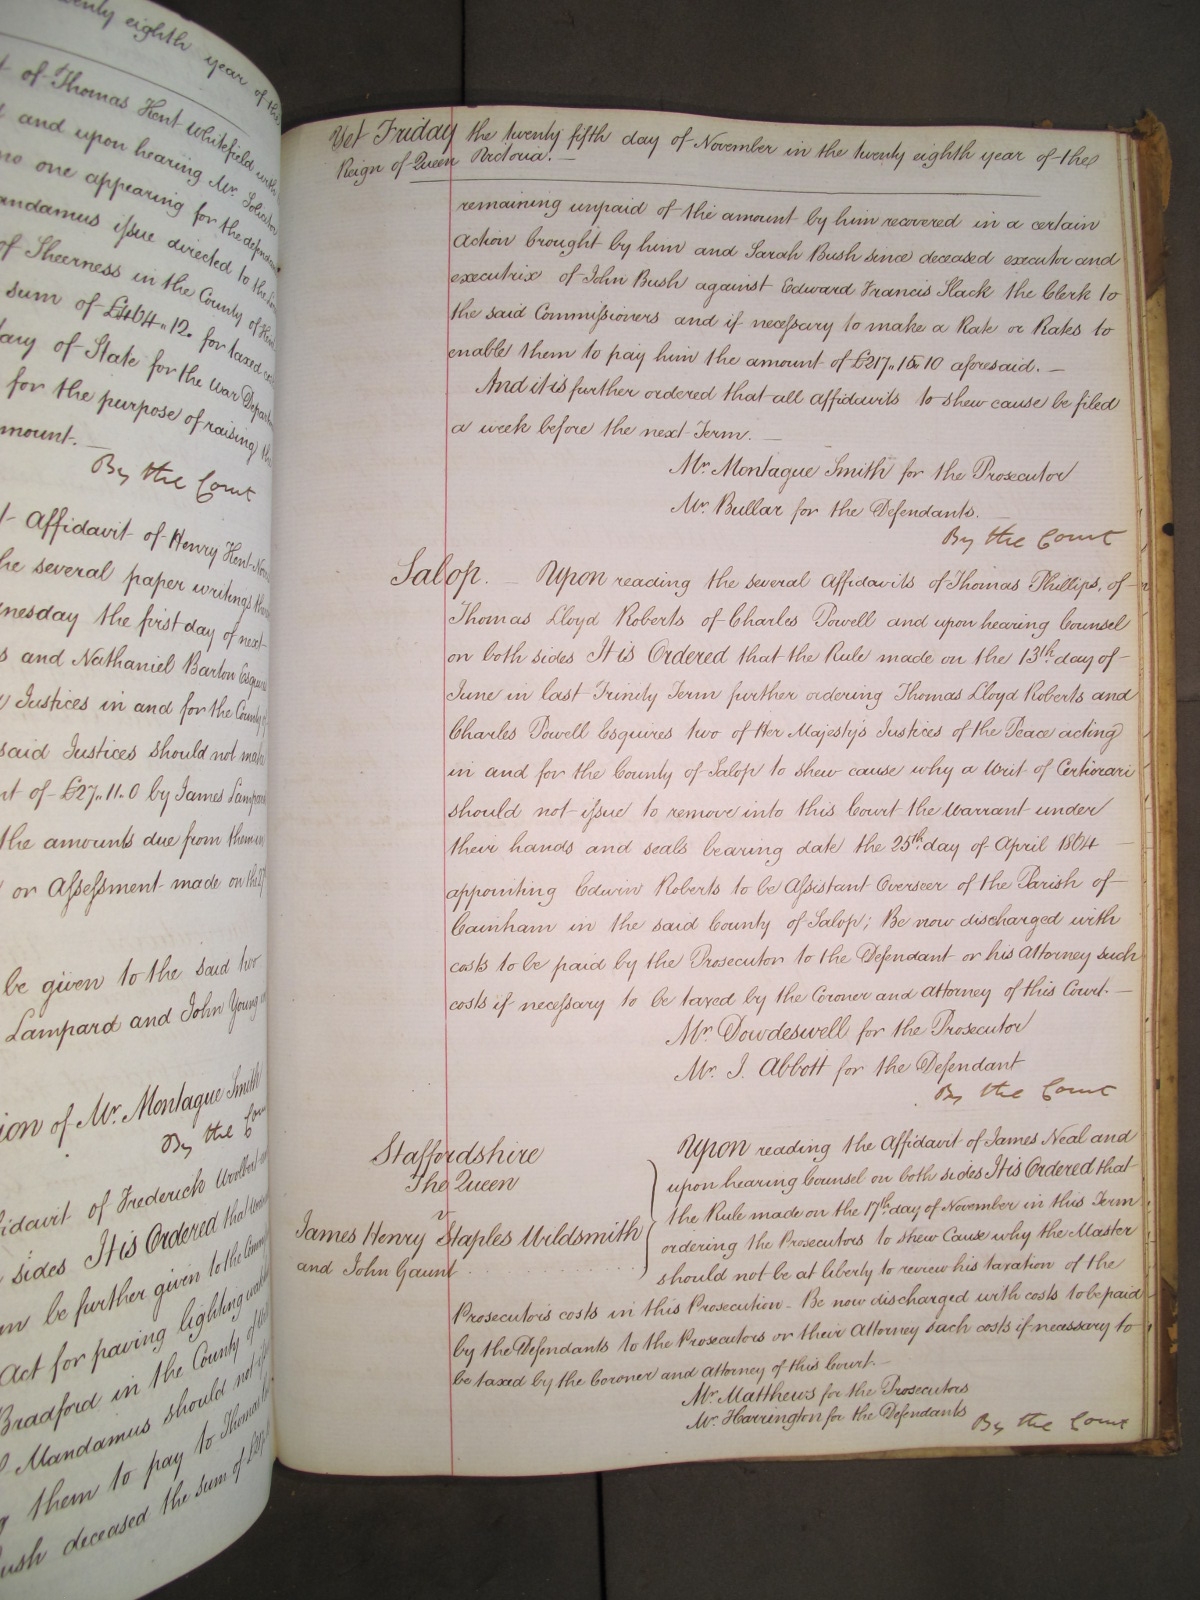 twenty eighth year of this
of Thomas Kent Whitefield with
and upon hearing Mr. Solicitor
no one appearing for the defendant
andamus issue directed to the
of Sheerness in the County of Kent
sum of £464..12. for taxed
ary of State for the War Depart
for the purpose of raising the
mount.
By the Court
Affidavit of Henry Kent
he several paper writings
nesday the first day of next
s and Nathaniel Barton Esquires
Justices in and for the County of
said Justices should not make
nt of £27..11.0 by James Lampard
the amounts due from them
or Assessment made on the 27
be given to the said two
Lampard and John Young
ion of Mr. Montague Smith
By the Cou
fidavit of Frederick
sides It is Ordered that
be further given to the
Act for paving lighting
Bradford in the County of
Mandamus should not
them to pay to Thomas
ush deceased the sum of
Yet Friday the twenty fifth day of November in the twenty eighth year of the
Reign of Queen Victoria. —
remaining unpaid of the amount by him recovered in a certain
Action brought by him and Sarah Bush since deceased executor and
executrix of John Bush against Edward Francis Slack the Clerk to
the said Commissioners and if necessary to make a Rate or Rates to
enable them to pay him the amount of £217..15.10 aforesaid. —
And it is further ordered that all affidavits to shew cause be filed
a week before the next Term. —
Mr. Montague Smith for the Prosecutor
Mr. Bullar for the Defendants.
By the Court
Salop. — Upon reading the several Affidavits of Thomas Phillips, of
Thomas Lloyd Roberts of Charles Powell and upon hearing Counsel
on both sides It is Ordered that the Rule made on the 13th. day of
June in last Trinity Term further ordering Thomas Lloyd Roberts and
Charles Powell Esquires two of Her Majesty's Justices of the Peace acting
in and for the County of Salop to shew cause why a Writ of Certiorari
should not issue to remove into this Court the Warrant under
their hands and seals bearing date the 25th. day of April 1864
appointing Edwin Roberts to be Assistant Overseer of the Parish of
Cainham in the said County of Salop; Be now discharged with
costs to be paid by the Prosecutor to the Defendant or his Attorney such
costs if necessary to be taxed by the Coroner and Attorney of this Court. —
Mr. Dowdeswell for the Prosecutor
Mr. J. Abbott for the Defendant
By the Court
Staffordshire
The Queen
v
James Henry Staples Wildsmith
and John Gaunt
Upon reading the Affidavit of James Neal and
upon hearing Counsel on both sides It is Ordered that
the Rule made on the 17th. day of November in this Term
ordering the Prosecutors to shew Cause why the Master
should not be at liberty to review his taxation of the
Prosecutors costs in this Prosecution – Be now discharged with costs to be paid
by the Defendants to the Prosecutors or their Attorney such costs if necessary to
be taxed by the Coroner and Attorney of this Court. —
Mr. Matthews for the Prosecutors
Mr. Harrington for the Defendants
By the Court